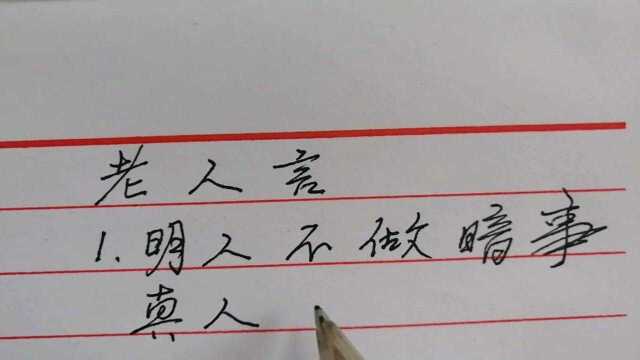 老人言
1.明人不做暗事
真人